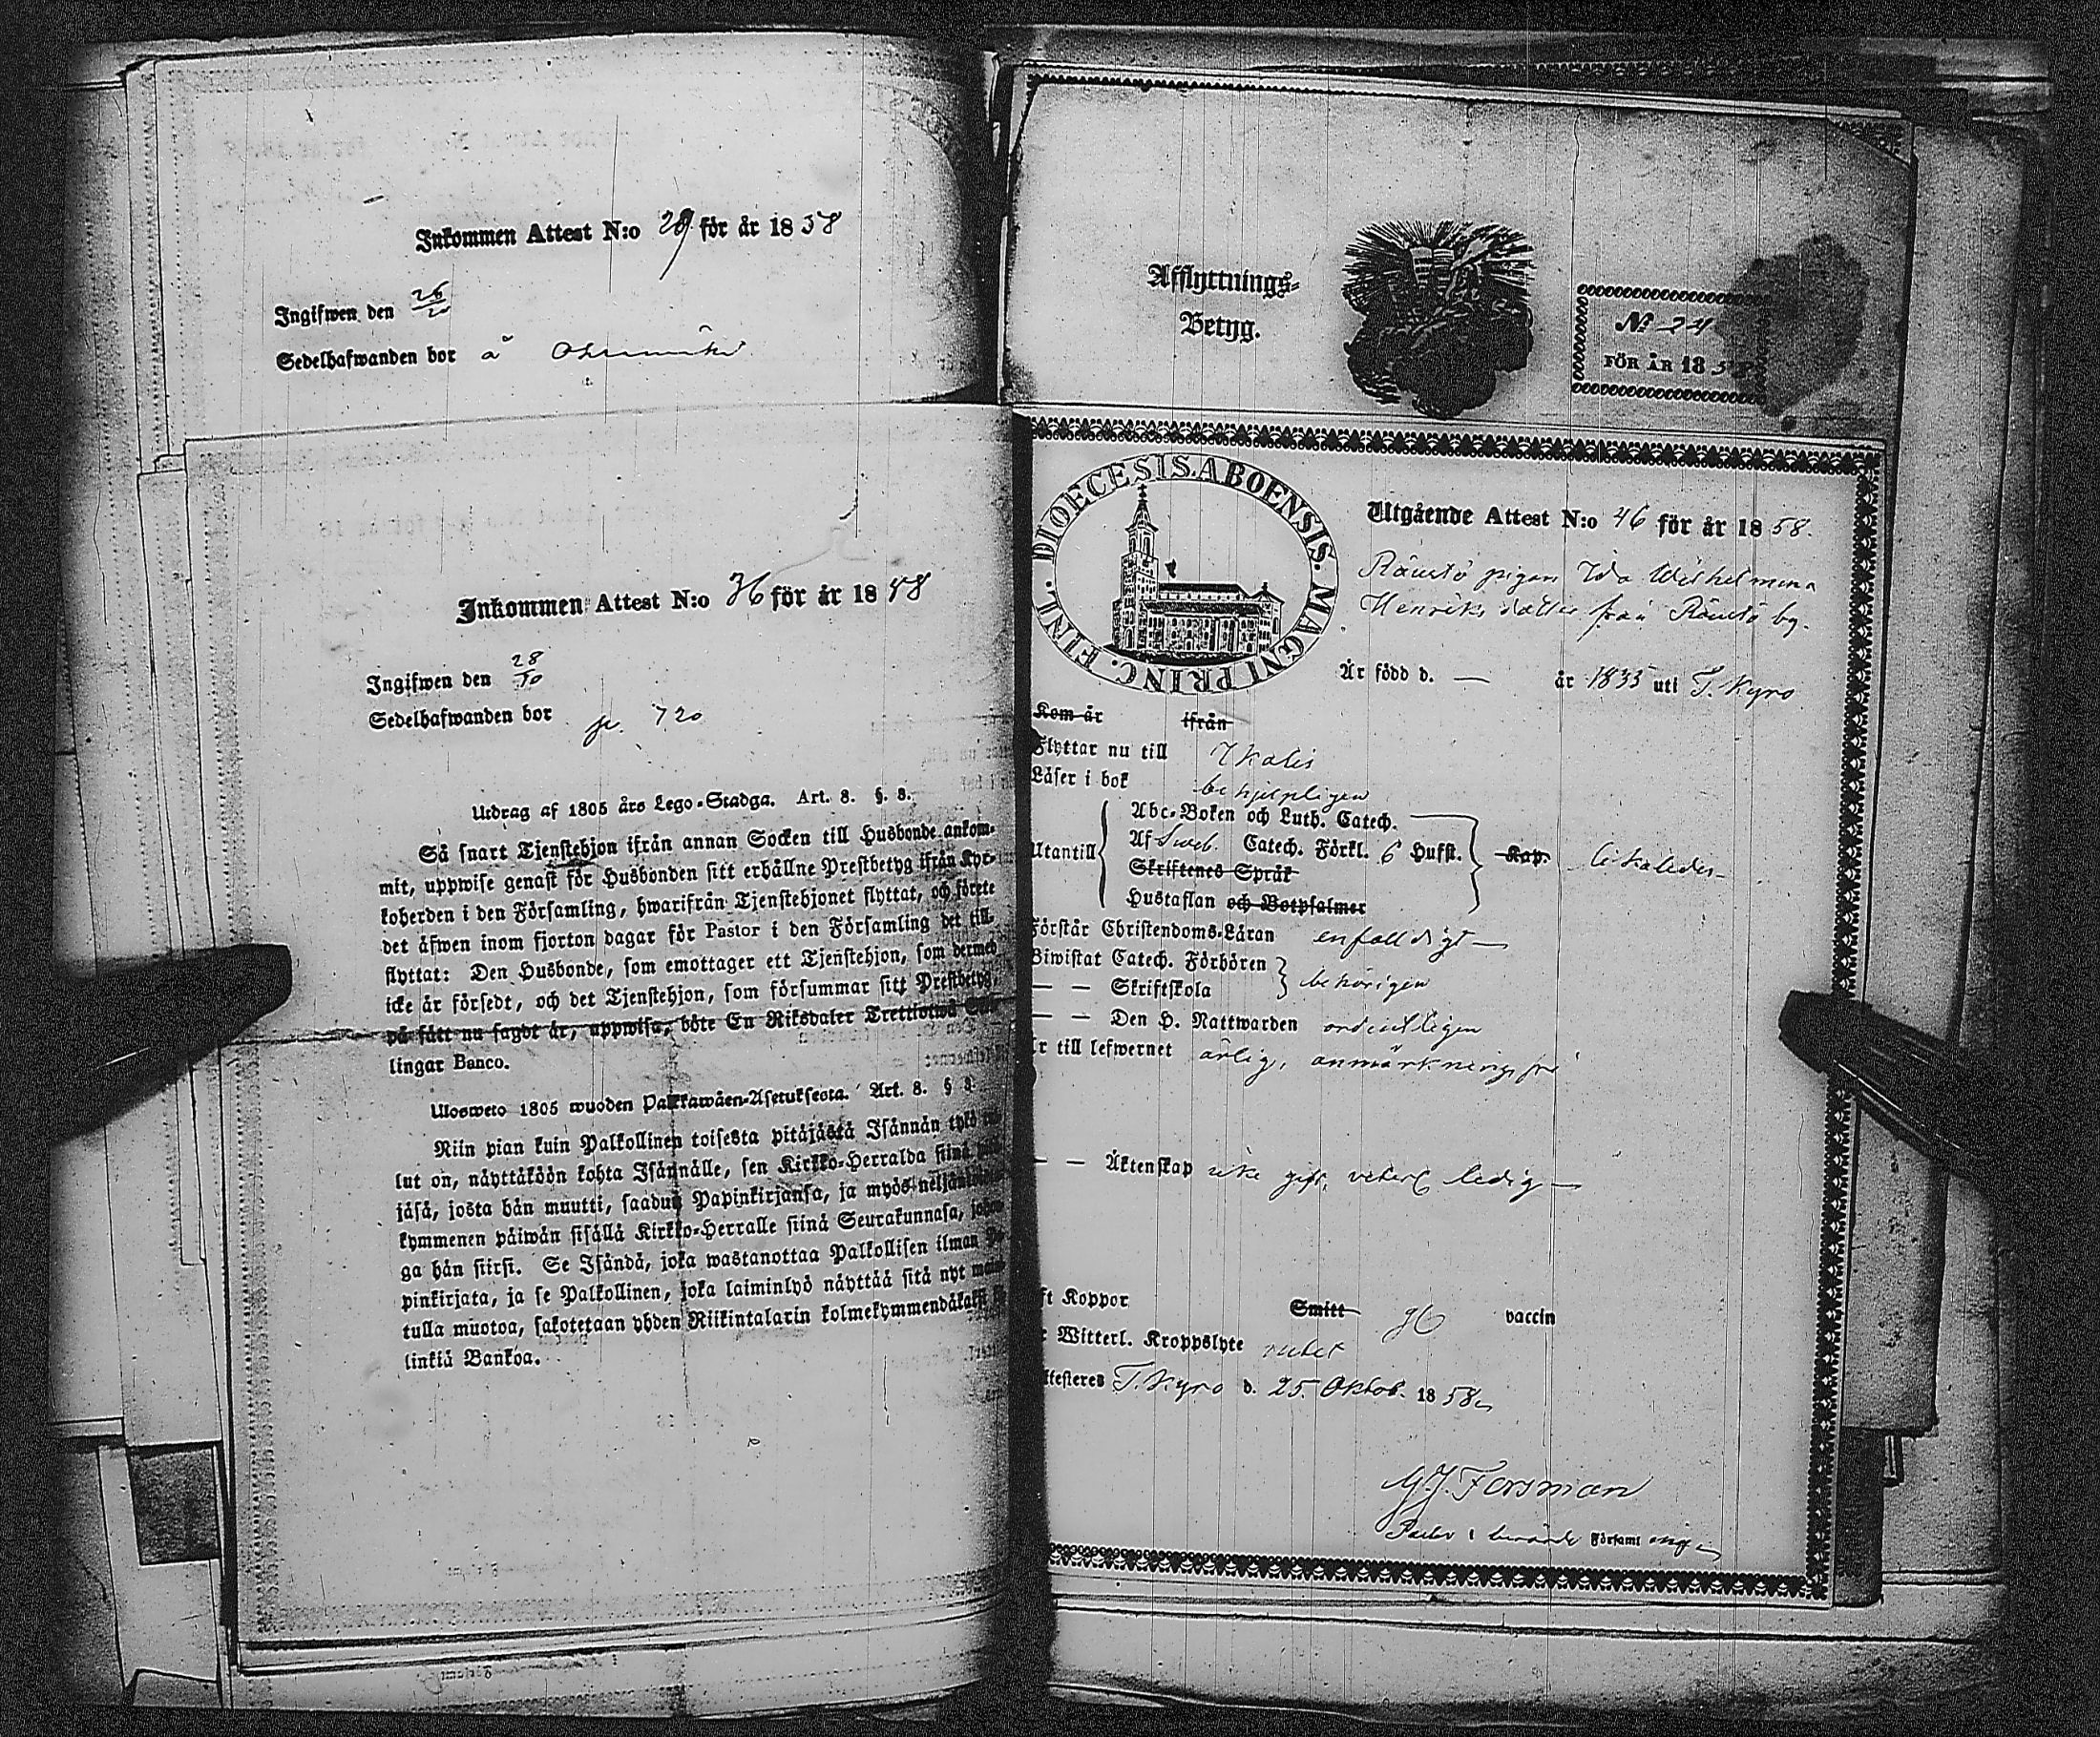 Inkommen Attest N:o 29. för år 1858
Ingifwen den 26/10
Sedelhafwanden bor å
Inkommen Attest N:o 36 för år 1858
Ingifwen den 28/10
Sedelhafwanden bor p. 720
Utdrag af 1805 års Lego-Stadga. Art. 8. §. 8.
Så snart Tjenstehjon ifrån annan Socken till Husbonde ankom-
mit, uppwise genast för Husbonden sitt erhållne Prestbetyg ifrån Kyr-
koherden i den Församling, hwarifrån Tjenstehjonet flyttat, och förete
det äfwen inom fjorton dagar för Pastor i den Församling det till-
flyttat: Den Husbonde, som emottager ett Tjenstehjon, som dermed
icke är försedt, och det Tjenstehjon, som försummar sitt Prestbetyg,
på sätt nu sagdt är, uppwisa, böte En Riksdaler Trettiotwå
lingar Banco.
Ulosweto 1805 wuoden Palkkawäen-Asetuksesta. Art. 8. § 8.
Niin pian kuin Palkollinen toisesta pitäjästä Isännän tykö
lut on, näyttäköön kohta Isännälle, sen Kirkko-Herralda siinä
jäsä, josta hän muutti, saadun Papinkirjansa, ja myös
kymmenen päiwän sisällä Kirkko-Herralle siinä Seurakunnasa,
ga hän siirsi. Se Isändä, joka wastanottaa Palkollisen ilman
pinkirjata, ja se Palkollinen, joka laiminlyö näyttää sitä nyt
tulla muotoa, sakotetaan yhden Riikintalarin kolmekymmendäkaksi
linkiä Bankoa.
Afflyttnings-
Betyg.
No 24
FÖR ÅR 185
DIOECESIS. ABOENSIS. MAGNI PRINC. FINL.
Utgående Attest N:o 46 för år 1858.
pigan Ida Wilhelmina
Henriks dotter från by.
Är född d. — år 1835 uti T. Kyro
Kom år ifrån
Flyttar nu till Ikalis
Läser i bok behjelpligen
Abc-Boken och Luth. Catech.
Utantill Af Sweb. Catech. Förkl. 6 Hufst. Kap. likaledes
Skriftenes Språk
Hustaflan och Botpsalmer
Förstår Christendoms-Läran enfalldigt —
Biwistat Catech. Förhören
— — Skriftskola behörigen
— — Den H. Nattwarden ordentligen
r till lefwernet ärlig, anmärkningsfri
— — Äktenskap icke gift, veterl. ledig —
ft Koppor Smitt gn vaccin
Witterl. Kroppslyte intet
ttesteres T. Kyro d. 25 Oktob. 1858
G. J. Forsman
Pastor i Församl